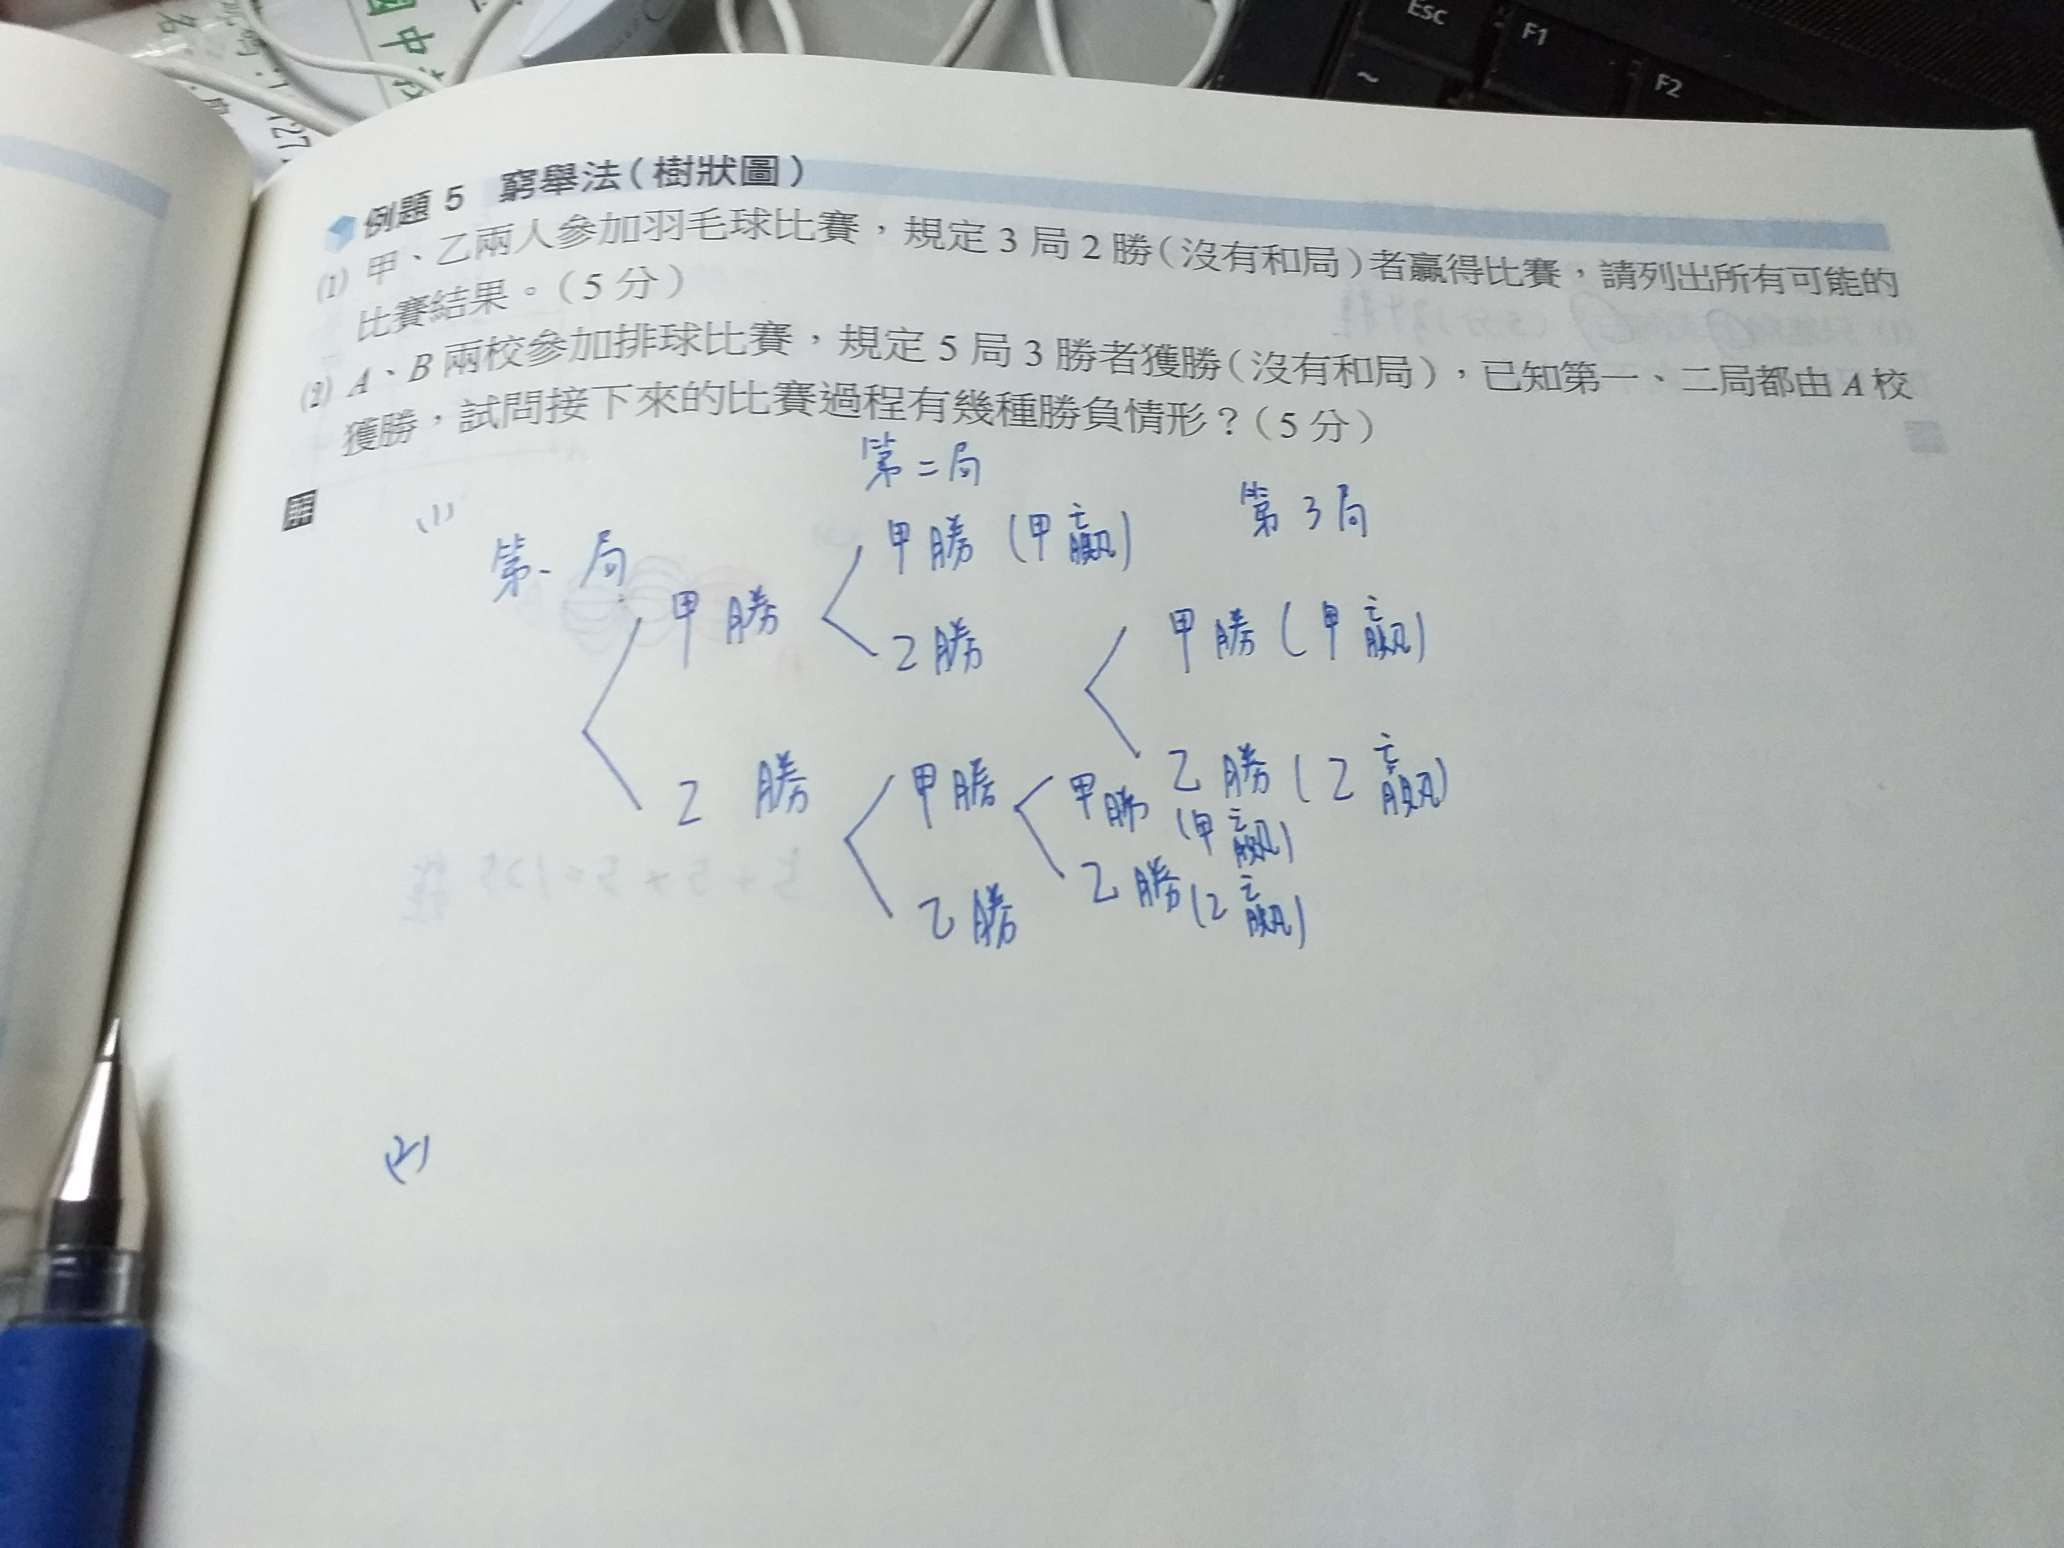 Esc
F1
~
F2
國中
名
例題 5 窮舉法(樹狀圖)
(1) 甲、乙兩人參加羽毛球比賽，規定 3 局 2 勝(沒有和局)者贏得比賽，請列出所有可能的
比賽結果。(5 分)
(2) A、B 兩校參加排球比賽，規定 5 局 3 勝者獲勝(沒有和局)，已知第一、二局都由 A 校
獲勝，試問接下來的比賽過程有幾種勝負情形？(5 分)
(1)
第一局
第二局
第3局
甲勝
甲勝 (甲贏)
乙勝
甲勝 (甲贏)
乙勝 (乙贏)
乙勝
甲勝
甲勝 (甲贏)
乙勝 (乙贏)
乙勝
(2)